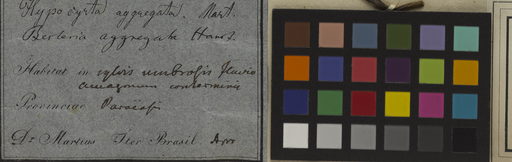 Hypocyrta aggregata. Mart.
Besleria aggregata Hanst.
Habitat in sylvis umbrosis fluvio
amazonum conterminis
Provinciae Paraënsis
Dr Martius Iter Brasil.